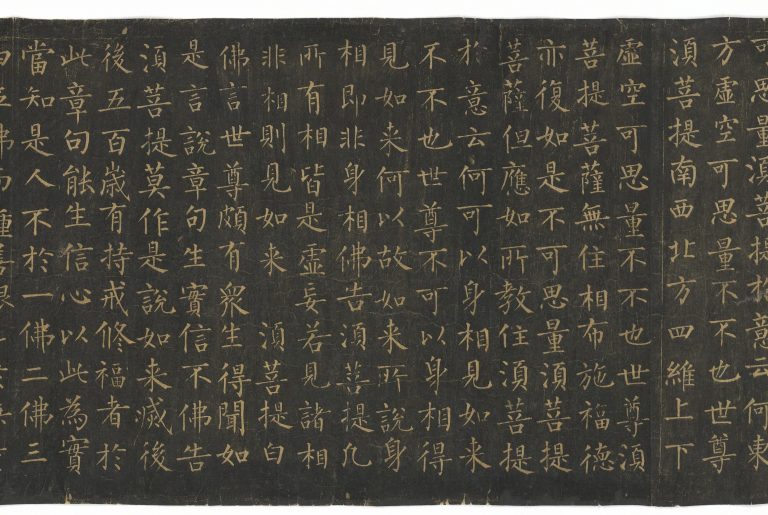 可思量湏菩提於意云何東
方虛空可思量不不也世尊
湏菩提南西北方四維上下
虛空可思量不不也世尊湏
菩提菩薩無住相布施福德
亦復如是不可思量湏菩提
菩薩但應如所教住湏菩提
於意云何可以身相見如来
不不也世尊不可以身相得
見如来何以故如来所說身
相即非身相佛告湏菩提凡
所有相皆是虛妄若見諸相
非相則見如来 湏菩提白
佛言世尊頗有衆生得聞如
是言說章句生實信不佛告
湏菩提莫作是說如来滅後
後五百歲有持戒修福者於
此章句能生信心以此為實
當知是人不於一佛二佛三
四五佛而種善根